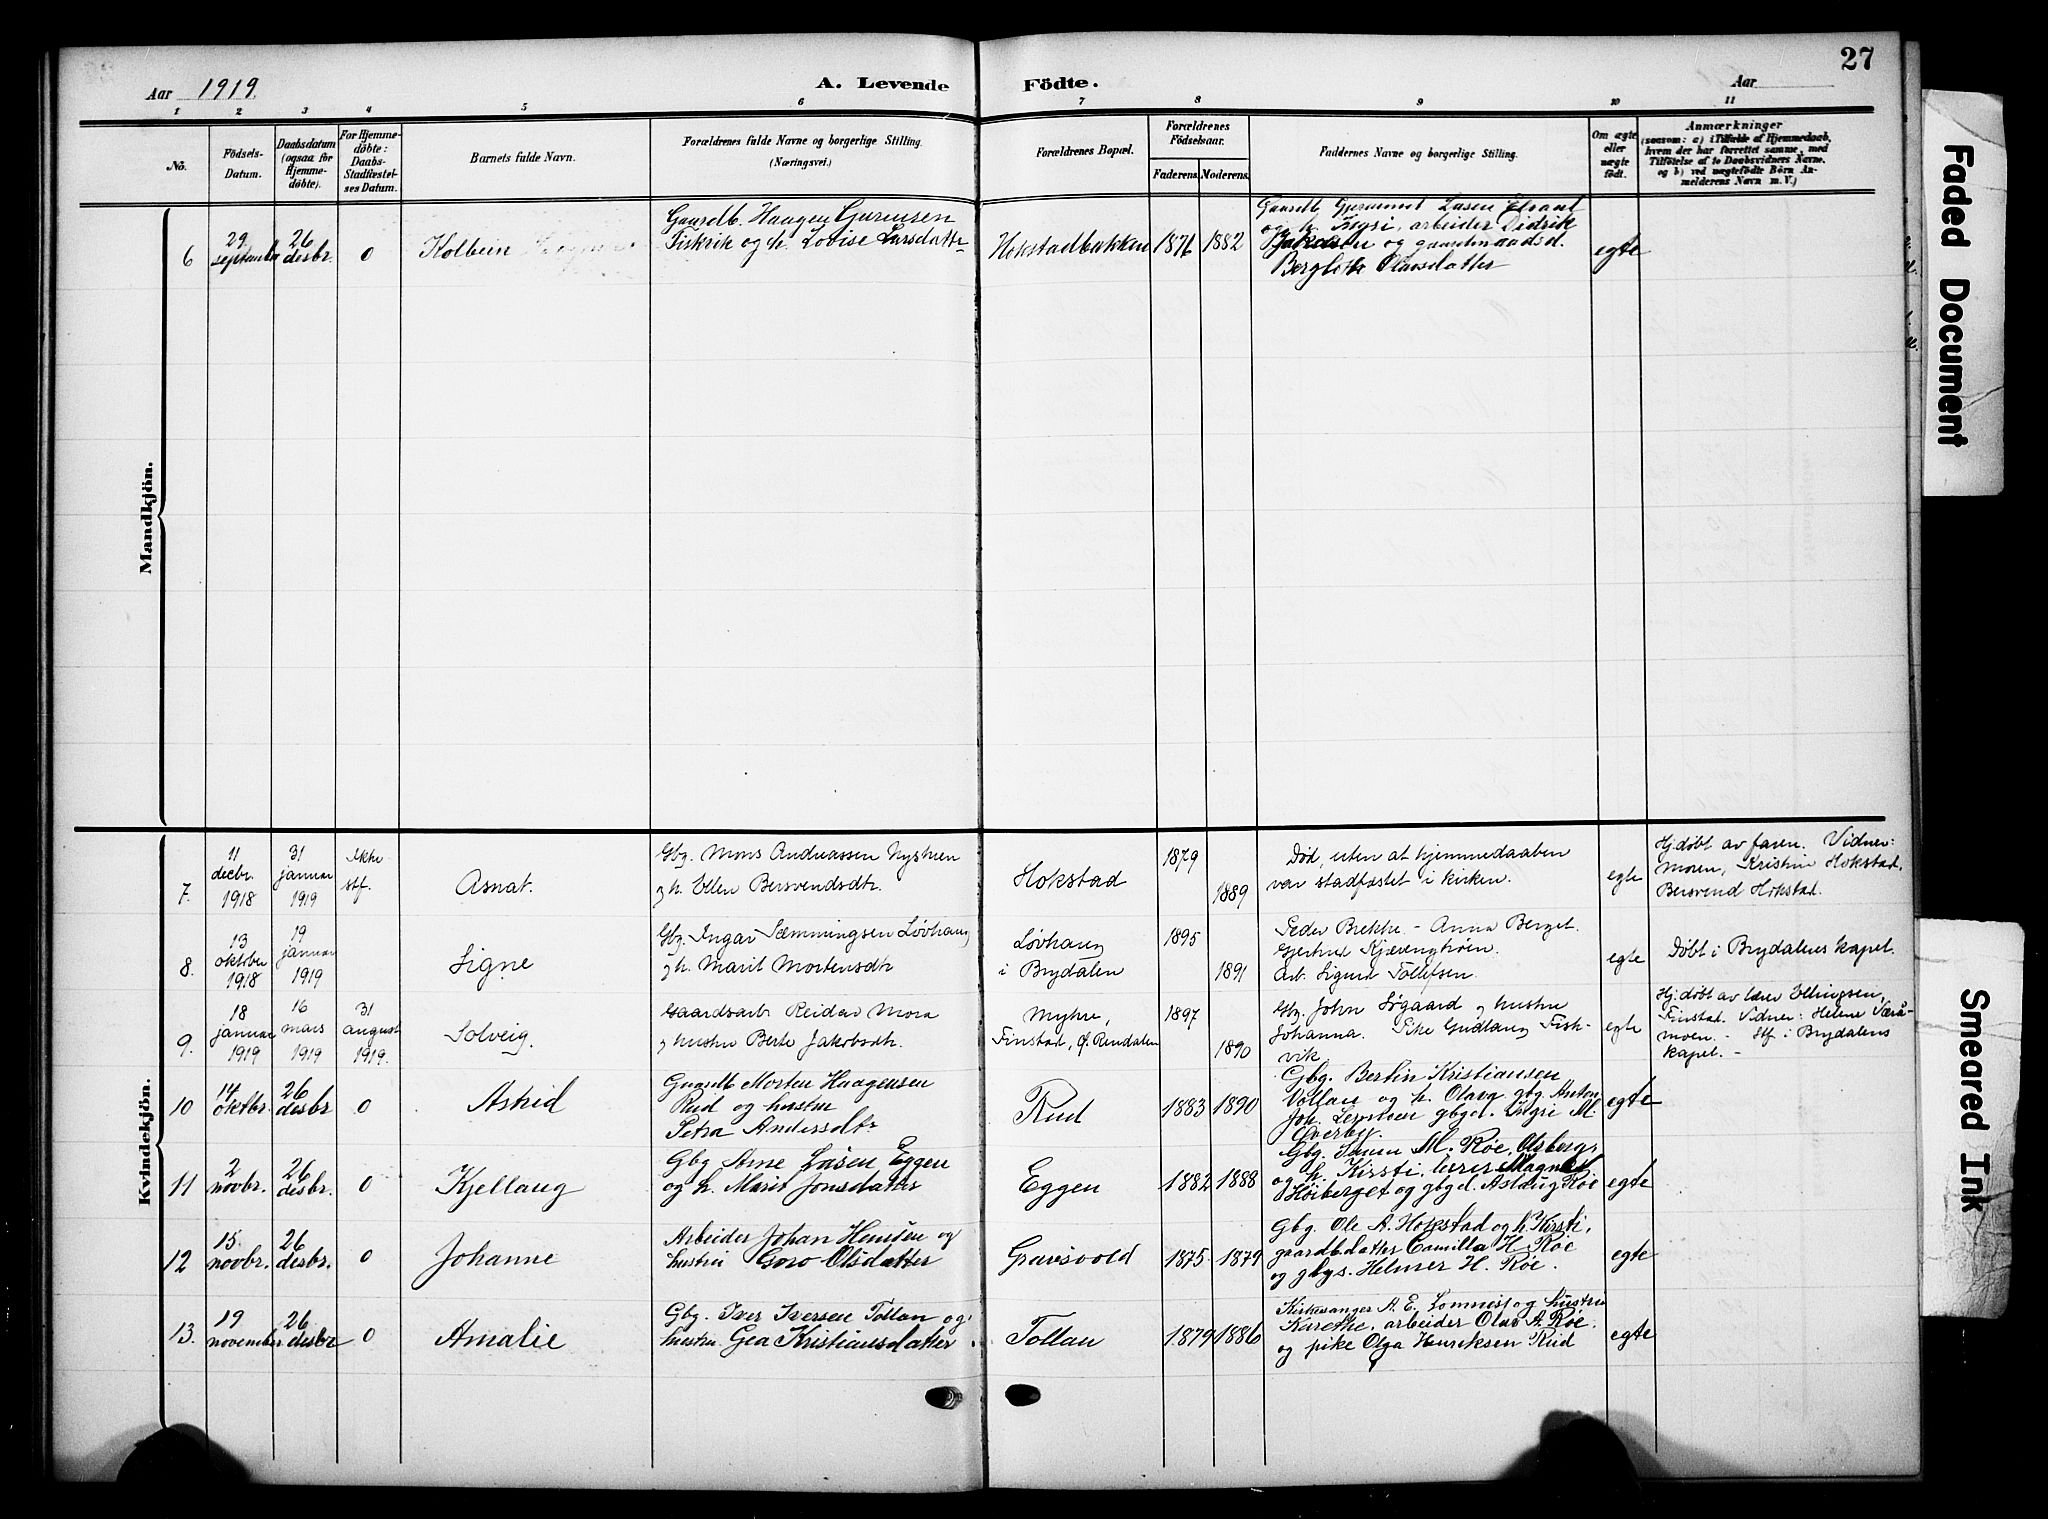 27
Aar 1919.
A. Levende
Födte.
Aar
1 2 3 4 5 6 7 8 9 10 11
No.
Födsels-
Datum.
Daabsdatum
(ogsaa for
Hjemme-
döbte).
For Hjemme-
döbte:
Daabs-
Stadfæstel-
ses Datum.
Barnets fulde Navn.
Forældrenes fulde Navne og borgerlige Stilling.
(Næringsvei.)
Forældrenes Bopæl.
Forældrenes
Födselsaar.
Faderens. Moderens.
Faddernes Navne og borgerlige Stilling.
Om ægte
eller
uægte
födt.
Anmærkninger
(saasom: a) i Tilfælde af Hjemmedaab,
hvem der har forrettet samme, med
Tilföielse af to Daabsvidners Navne,
og b) ved uægtefödte Börn An-
melderens Navn m. V.)
Mandkjön.
6
29
september
26
desbr.
0
Kolbein
Gaardb. Haagen
Fiskvik og h. Lovise Larsdatter
Hokstadbakken
1876
1882
Gaardb.
og h. arbeider Didrik
og gaardmandsd.
Bergliot Olavsdatter
egte
Kvindekjön.
7.
11
decbr.
1918
31
januar
1919
Ikke
stf.
Asnat.
Gbg. Mons Andreassen Nystuen
og h. Ellen Bersvendsdtr.
Hokstad
1879
1889
Død, uten at hjemmedaaben
var stadfæstet i kirken.
egte
Hj.døbt av faren. Vidner:
moren, Kristin Hokstad,
Bersvend Hokstad.
8.
13
oktober
1918
19
januar
1919
Signe
Gbg. Ingar Sæmmingsen Løvhaug
og h. Marit Mortensdtr
Løvhaug
i Brydalen
1895
1891
Peder Brekke – Anna Berget.
Gjertrud
Arb. Sigurd Tollefsen.
egte
Døbt i Brydalens kapel.
9.
18
januar
1919
16
mars
1919
31
august
1919.
Solveig.
Gaardsarb. Reidar Mora
og hustru Berte Jakobsdtr.
Myhre,
Finstad, Ø. Rendalen
1897
1890
Gbg. John Søgaard og hustru
Johanna. Pike Gudlaug Fisk-
vik
egte
Hj.døbt av lærer Ellingsen,
Finstad. Vidner: Helene
moen. – Stf. i Brydalens
kapel. –
10
14
oktbr.
26
desbr
0
Astrid
Gaardb Morten Haagensen
Rud og hustru
Petra Andersdtr
Rud
1883
1890
Gbg. Bertin Kristiansen
Vollan og h. Olaug gbg. Anton
Joh. gbgd. M.
egte
11
2
novbr.
26
desbr.
0
Kjellaug
Gbg Arne Larsen Eggen
og h. Marit Jonsdatter
Eggen
1882
1888
Gbg. M. Røe,
og h. Kirsti, lærer Magnus
Høiberget og gbgd. Aslaug Røe
egte
12
15.
novbr.
26
desbr.
0
Johanne
Arbeider Johan Hansen og
hustru Goro Olsdatter
Gravsvold
1875
1879
Gbg. Ole A. Hokstad og h. Kirsti,
gaardbdatter Camilla H. Røe
og gbgs. Helmer H. Røe.
egte
13.
19
november
26
desbr
0
Amalie
Gbg. Iver Iversen Tollan og
hustru. Gea Kristiansdatter.
Tollan
1879
1886
Kirkesanger A. E. Lomnest og hustru
Karethe, arbeider Olav A. Røe
og pike Olga Henriksen Rud
egte
Faded Document
Smeared Ink